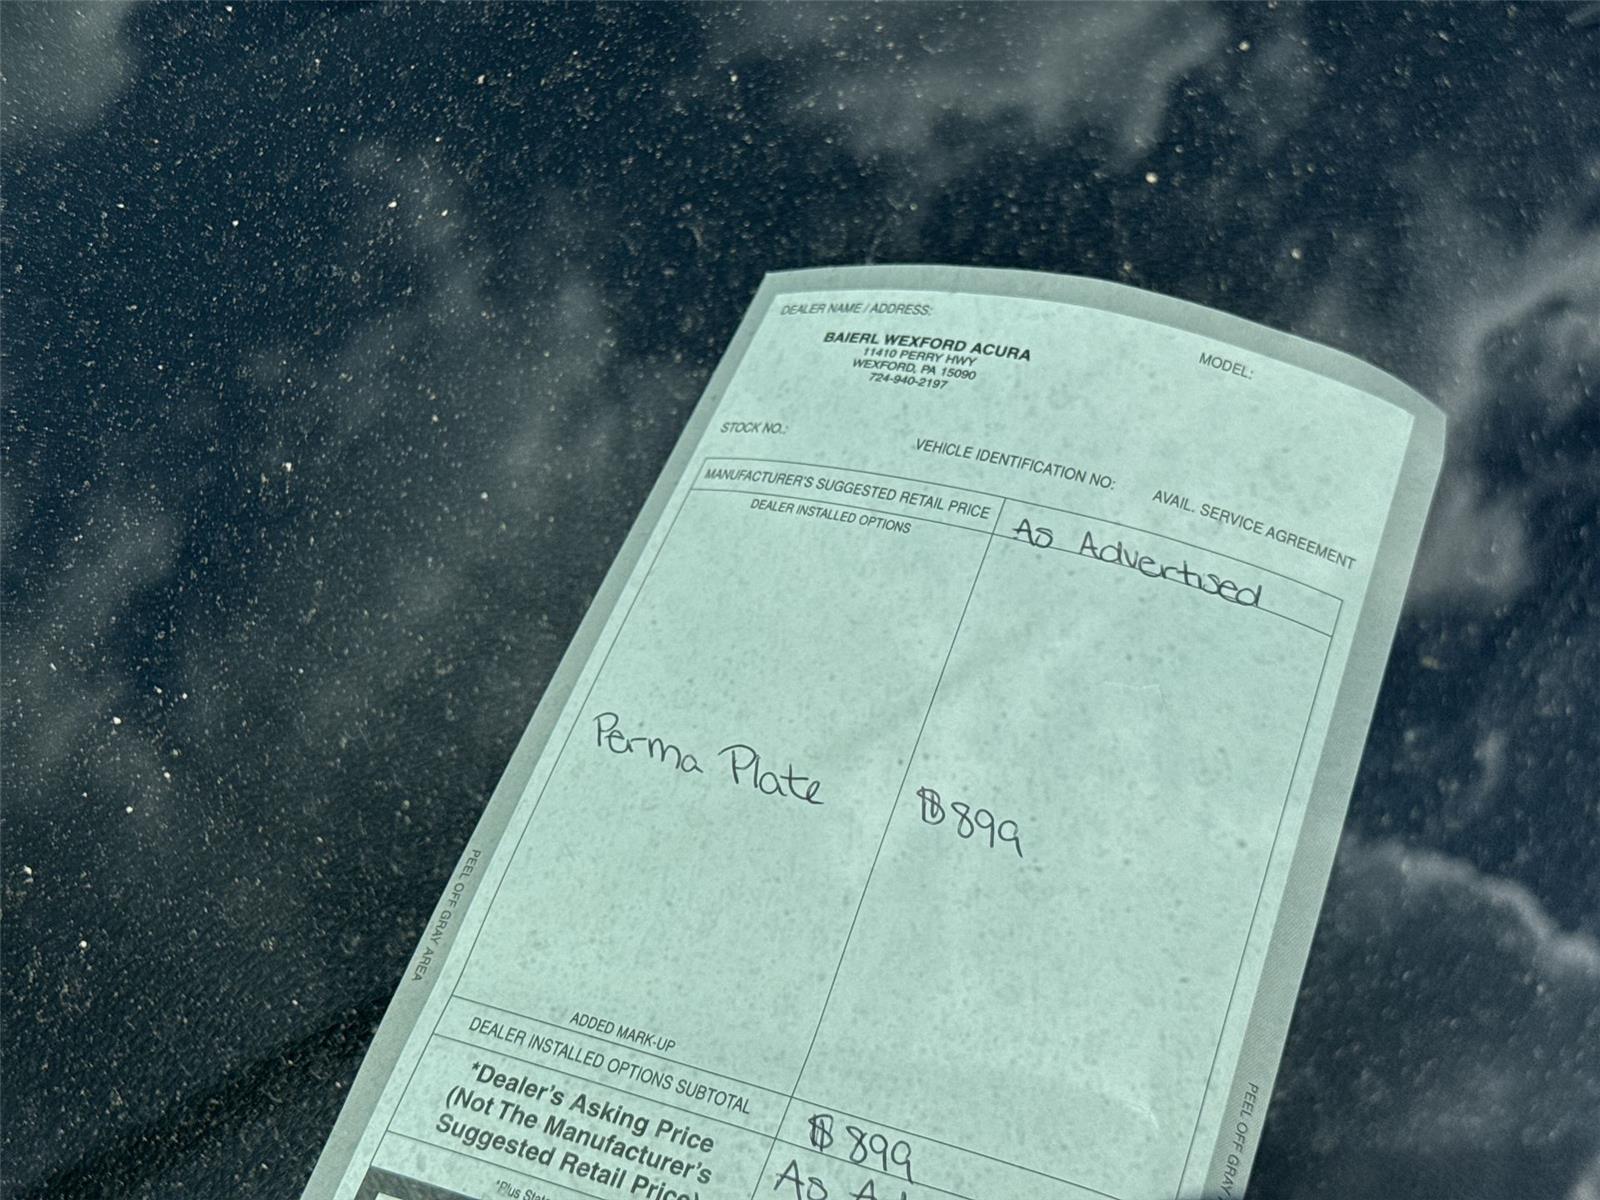 DEALER NAME / ADDRESS:
BAIERL WEXFORD ACURA
11410 PERRY HWY
WEXFORD, PA 15090
724-940-2197
MODEL:
STOCK NO.:
VEHICLE IDENTIFICATION NO:
AVAIL. SERVICE AGREEMENT
MANUFACTURER'S SUGGESTED RETAIL PRICE
As Advertised
DEALER INSTALLED OPTIONS
Perma Plate
$899
PEEL OFF GRAY AREA
ADDED MARK-UP
DEALER INSTALLED OPTIONS SUBTOTAL
$899
*Dealer's Asking Price
(Not The Manufacturer's
Suggested Retail Price)
As
*Plus
PEEL OFF GRAY